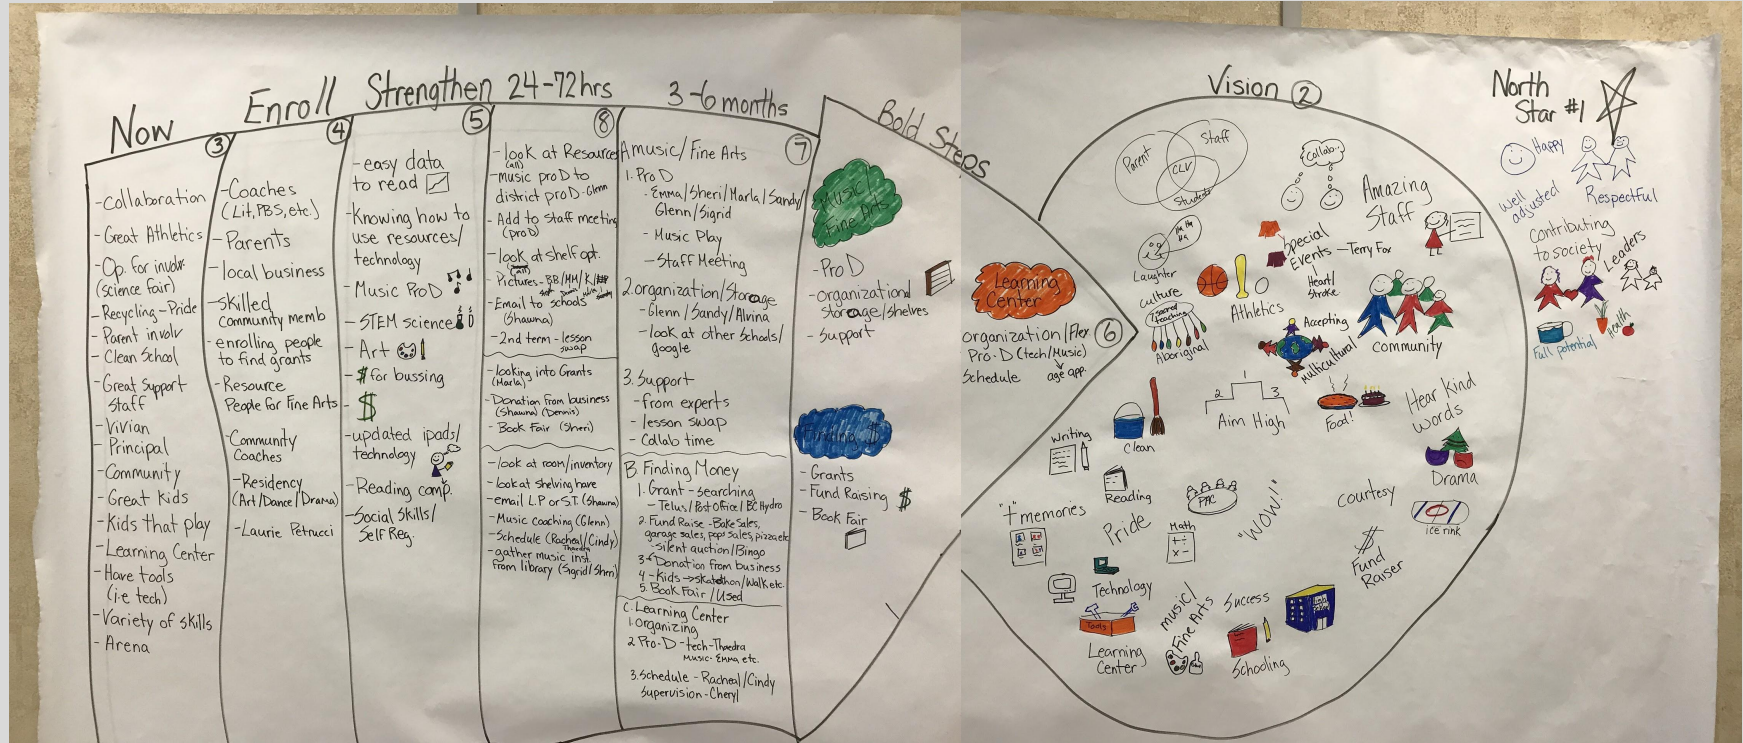 Now
③
- Collaboration
- Great Athletics
- Op. for involv
(science fair)
- Recycling - Pride
- Parent involv
- Clean School
- Great Support
Staff
- Vivian
- Principal
- Community
- Great Kids
- Kids that play
- Learning Center
- Have tools
(i.e tech)
- Variety of skills
- Arena
Enroll
④
- Coaches
(Lit, PBS, etc.)
- Parents
- local business
- Skilled
Community memb
- enrolling people
to find grants
- Resource
People for Fine Arts
- Community
Coaches
- Residency
(Art/Dance/Drama)
- Laurie Petrucci
Strengthen
⑤
- easy data
to read
- Knowing how to
use resources/
technology
- Music ProD
- STEM science
- Art
- $ for bussing
- $
- updated ipads/
technology
- Reading comp.
- Social Skills/
Self Reg.
24-72hrs
⑧
- look at Resources
(all)
- music pro D to
district pro D - Glenn
- Add to staff meeting
(pro D)
- look at shelf opt.
(all)
- Pictures - BB/MM/K/
- Email to schools
(Shawna)
- 2nd term - lesson
swap
- looking into Grants
(Marla)
- Donation from business
(Shawna) (Dennis)
- Book Fair (Sheri)
- look at room/inventory
- look at shelving have
- email L.P or S.T. (Shawna)
- Music coaching (Glenn)
- Schedule (Racheal/Cindy)
Thaedra
- gather music inst.
from library (Sigrid/Sheri)
3-6 months
⑦
A music/Fine Arts
1. Pro D
- Emma/Sheri/Marla/Sandy/
Glenn/Sigrid
- Music Play
- Staff Meeting
2. organization/Storage
- Glenn/Sandy/Alvina
- look at other schools/
google
3. Support
- from experts
- lesson swap
- Collab time
B. Finding Money
1. Grant - searching
- Telus/Post office/BC Hydro
2. Fund Raise - Bake Sales,
garage sales, pop sales, pizza etc
- Silent auction/Bingo
3 - Donation from business
4 - Kids → skatathon/Walk etc.
5. Book Fair/Used
C. Learning Center
1. Organizing
2 Pro-D - tech - Thaedra
Music - Emma etc.
3. Schedule - Racheal/Cindy
Supervision - Cheryl
Bold Steps
Music
Fine Arts
- Pro D
- organizational
storage/shelves
- Support
Finding $
- Grants
- Fund Raising $
- Book Fair
Learning
Center
organization/Flex.
Pro. D (tech/Music)
age app.
Schedule
⑥
Vision ②
Parent
Staff
CLV
Students
Collab..
Amazing
Staff
Ha Ha
Ha
Laughter
Special
Events - Terry Fox
Heart/
Stroke
Culture
7 sacred
teachings
Aboriginal
Athletics
Accepting
Multicultural
Community
2 1 3
Aim High
Food!
Hear Kind
words
Clean
Writing
Reading
Drama
"+ memories"
Pride
PAC
Math
+ ÷
× -
"WOW!"
courtesy
ice rink
$
Fund
Raiser
Technology
Tools
Learning
Center
music/
Fine Arts
Success
Schooling
North
Star #1
Happy
Well
adjusted
Respectful
Contributing
to society
Leaders
Full potential
Health